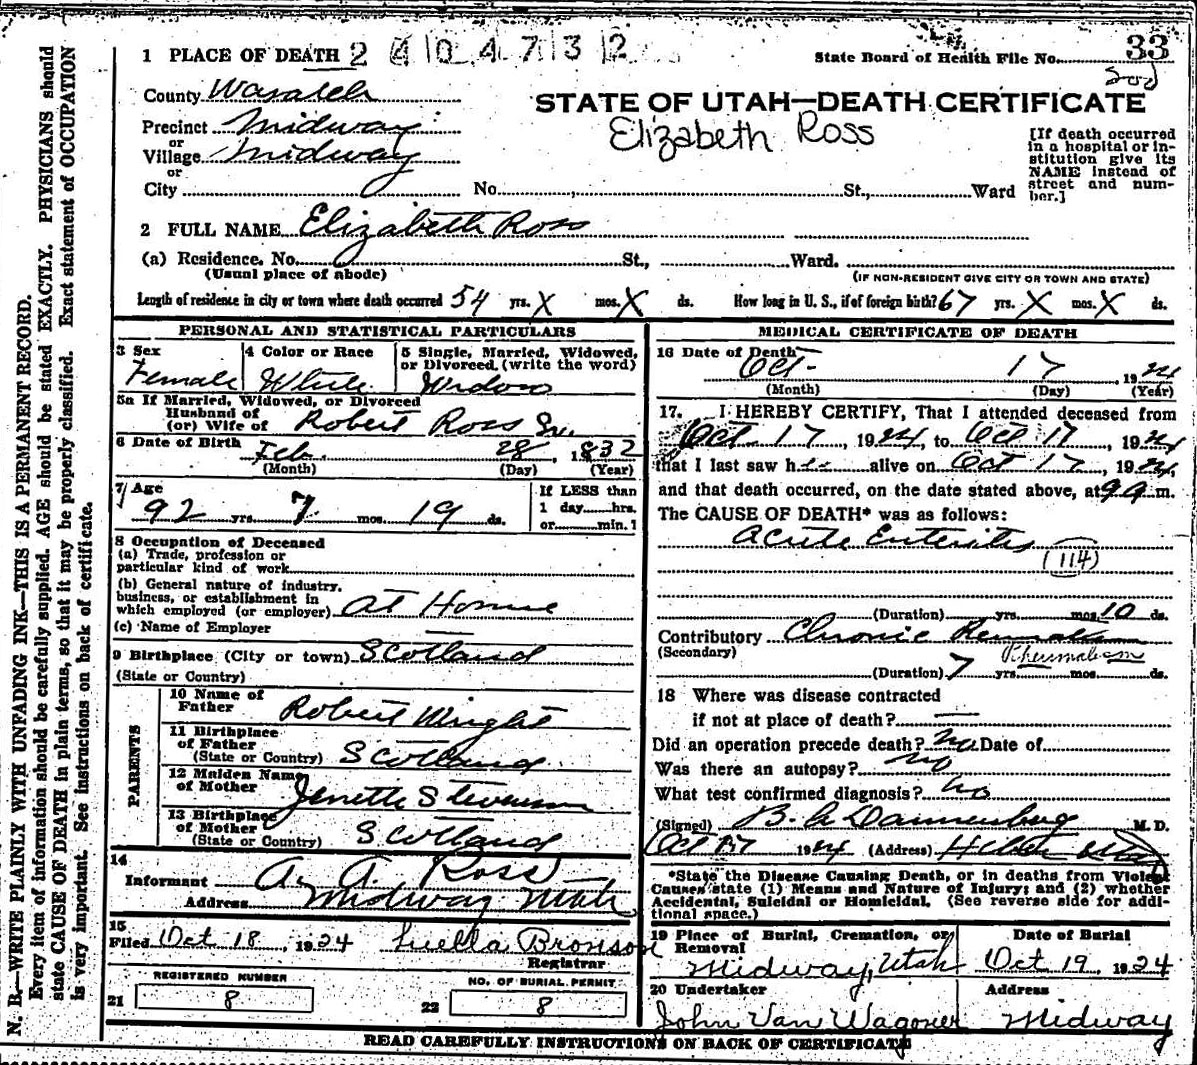 1 PLACE OF DEATH 2 4 0 4 7 3 2
State Board of Health File No. 33
County Wasatch
STATE OF UTAH—DEATH CERTIFICATE
Precinct Midway
Elizabeth Ross
or
Village Midway
or
City No. St., Ward
[If death occurred
in a hospital or in-
stitution give its
NAME instead of
street and num-
ber.]
2 FULL NAME Elizabeth Ross
(a) Residence. No. St., Ward.
(Usual place of abode) (IF NON-RESIDENT GIVE CITY OR TOWN AND STATE)
Length of residence in city or town where death occurred 54 yrs. X mos. X ds. How long in U. S., if of foreign birth? 67 yrs. X mos. X ds.
PERSONAL AND STATISTICAL PARTICULARS
3 Sex 4 Color or Race 5 Single, Married, Widowed,
or Divorced. (write the word)
Female White Widow
5a If Married, Widowed, or Divorced
Husband of
(or) Wife of Robert Ross Sr.
6 Date of Birth Feb. 28, 1832
(Month) (Day) (Year)
7 Age If LESS than
92 yrs. 7 mos. 19 ds. 1 day hrs.
or min. 1
8 Occupation of Deceased
(a) Trade, profession or
particular kind of work
(b) General nature of industry.
business, or establishment in
which employed (or employer) At Home
(c) Name of Employer
9 Birthplace (City or town) Scotland
(State or Country)
PARENTS
10 Name of
Father Robert Wright
11 Birthplace
of Father
(State or Country) Scotland
12 Maiden Name
of Mother Jenette Stevenson
13 Birthplace
of Mother
(State or Country) Scotland
14
Informant A. A. Ross
Address Midway Utah
15
Filed Oct 18, 1924 Luella Bronson
Registrar
REGISTERED NUMBER NO. OF BURIAL PERMIT
21 8 22 8
MEDICAL CERTIFICATE OF DEATH
16 Date of Death
Oct. 17, 1924
(Month) (Day) (Year)
17. I HEREBY CERTIFY, That I attended deceased from
Oct. 17, 1924, to Oct 17, 1924
that I last saw her alive on Oct 17, 1924,
and that death occurred, on the date stated above, at 9 a m.
The CAUSE OF DEATH* was as follows:
Acute Enteritis
(114)
(Duration) yrs. mos. 10 ds.
Contributory Chronic
(Secondary) Rheumatism
(Duration) 7 yrs. mos. ds.
18 Where was disease contracted
if not at place of death? —
Did an operation precede death? no Date of
Was there an autopsy? no
What test confirmed diagnosis? no
(Signed) Dannenberg M. D.
Oct 17 1924 (Address) Heber Utah
*State the Disease Causing Death, or in deaths from Violent
Causes state (1) Means and Nature of Injury; and (2) whether
Accidental, Suicidal or Homicidal. (See reverse side for addi-
tional space.)
19 Place of Burial, Cremation, or
Removal Date of Burial
Midway, Utah Oct 19, 1924
20 Undertaker Address
John Van Wagoner Midway
READ CAREFULLY INSTRUCTIONS ON BACK OF CERTIFICATE
N. B.—WRITE PLAINLY WITH UNFADING INK—THIS IS A PERMANENT RECORD.
Every item of information should be carefully supplied. AGE should be stated EXACTLY. PHYSICIANS should
state CAUSE OF DEATH in plain terms, so that it may be properly classified. Exact statement of OCCUPATION
is very important. See instructions on back of certificate.